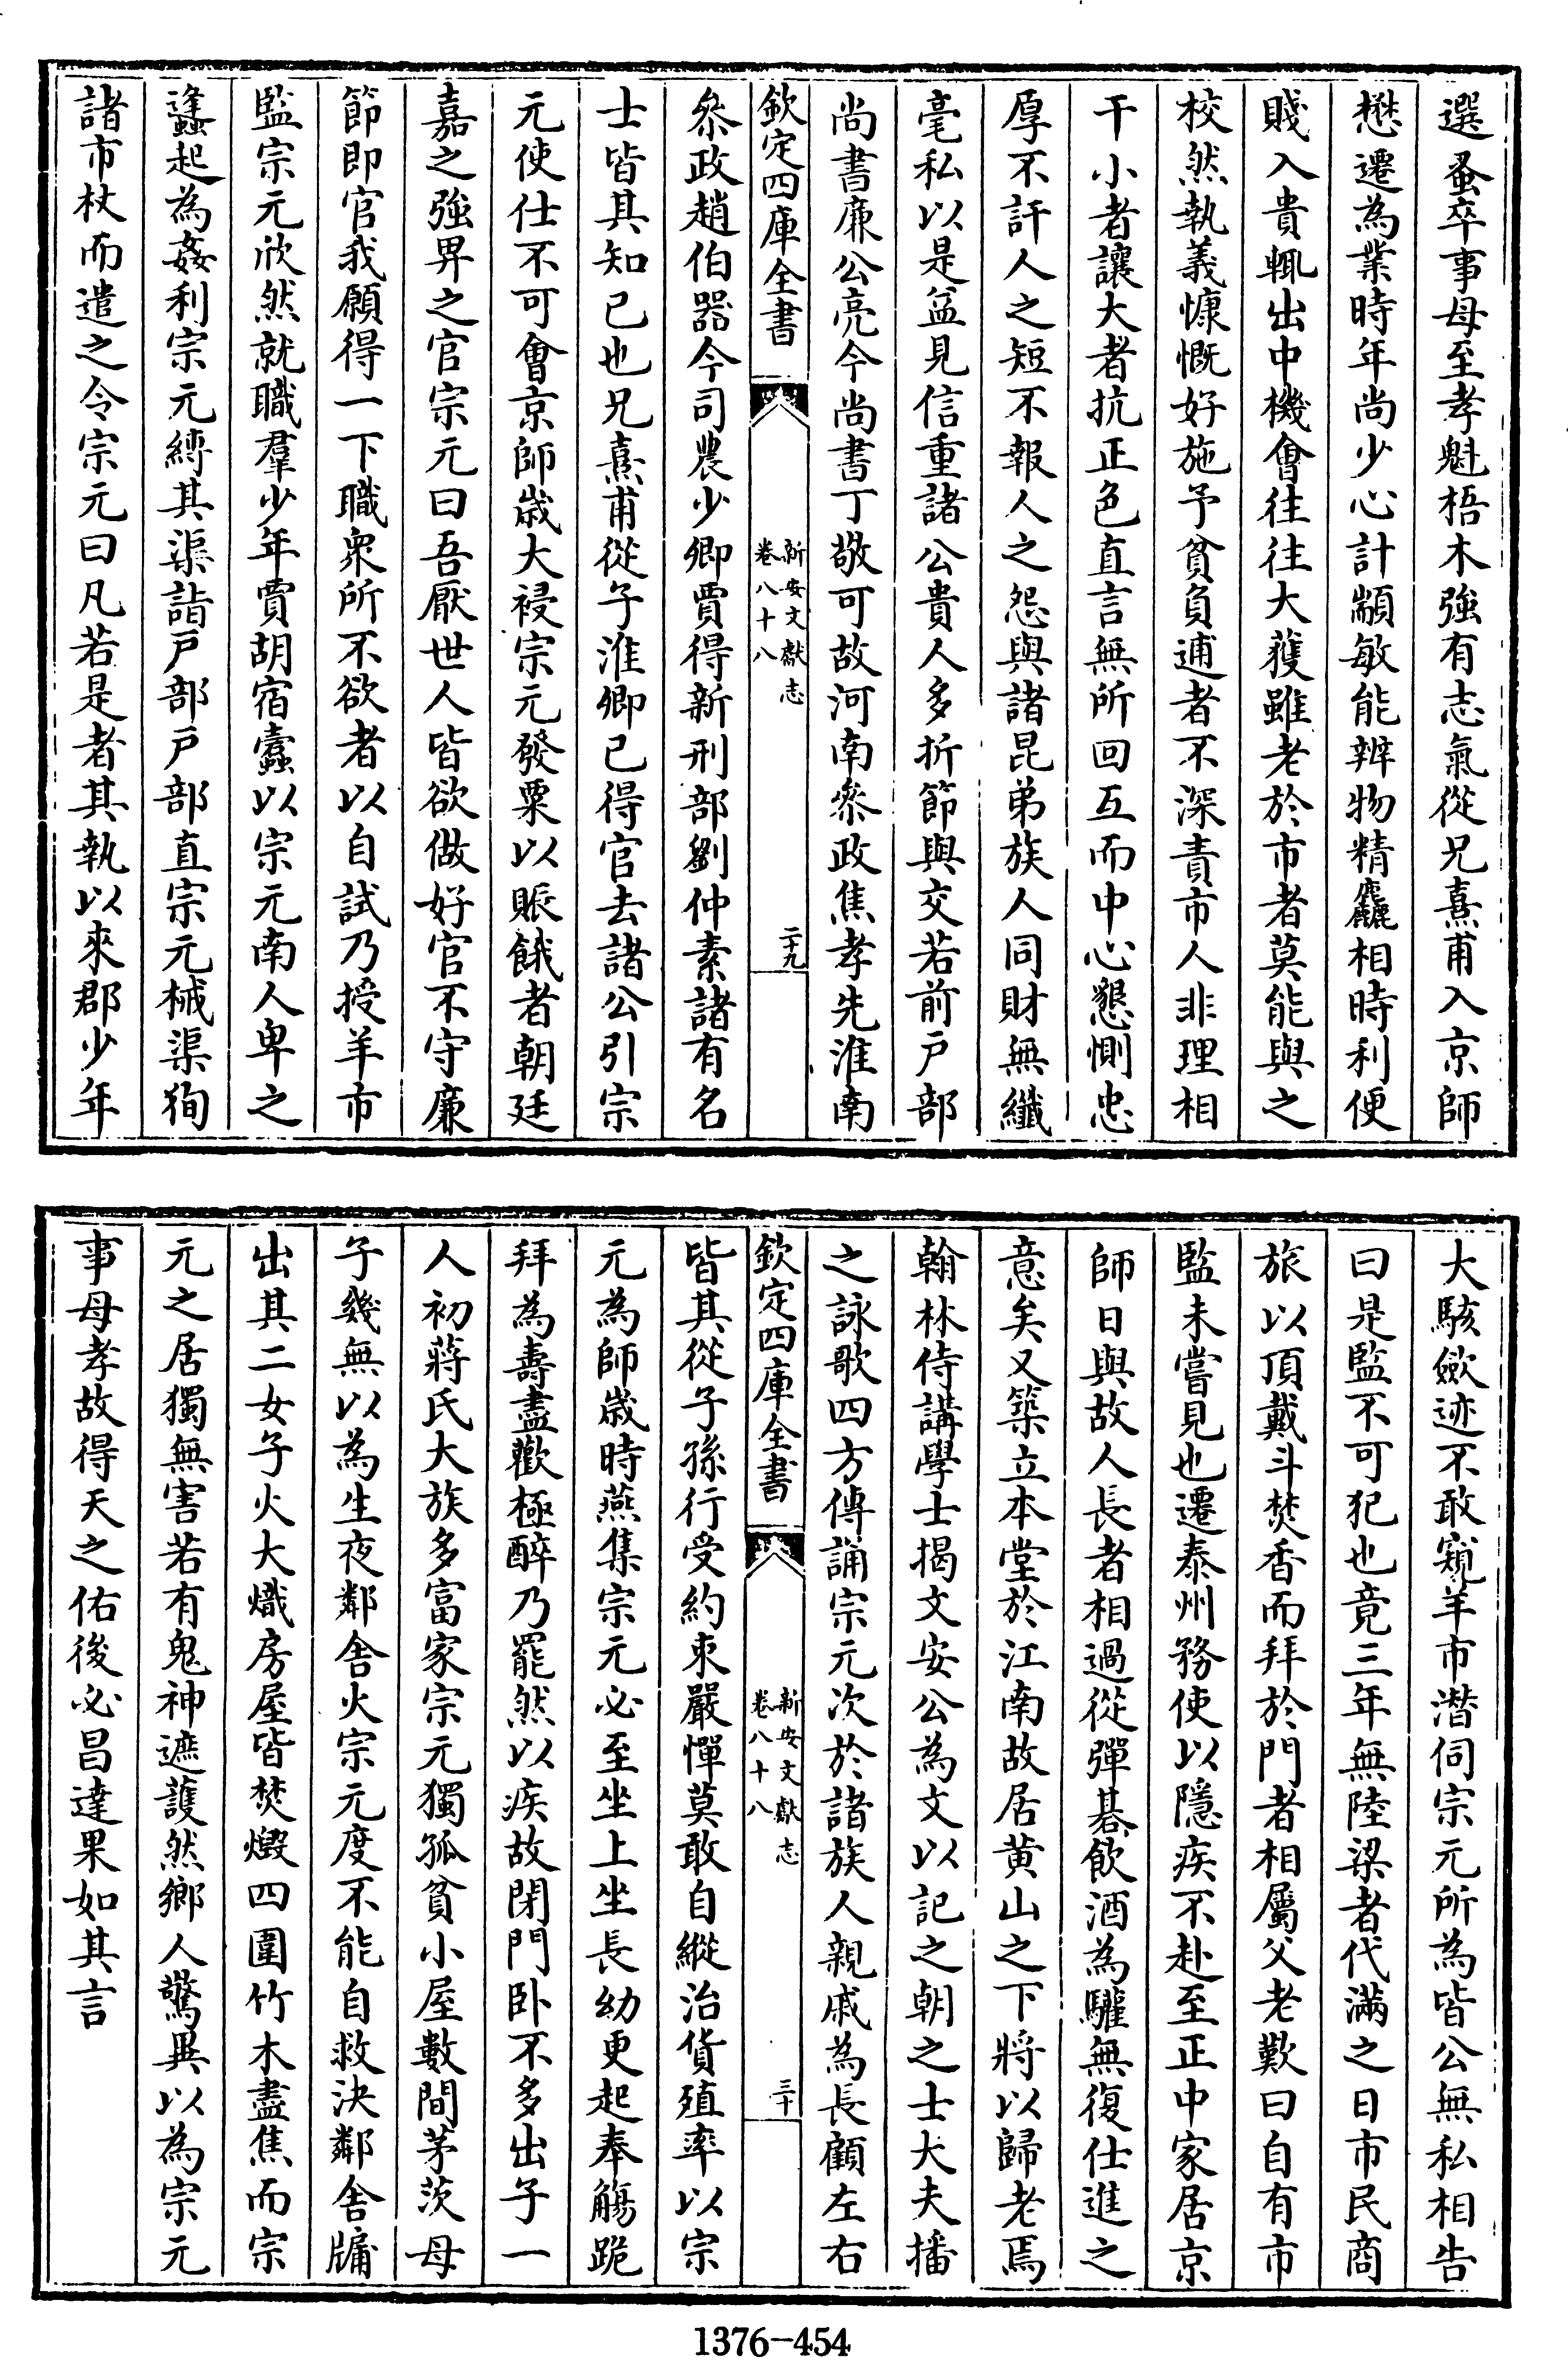 選蚤卒事母至孝魁梧木強有志氣從兄熹甫入京師
懋遷為業時年尚少心計顓敏能辨物精麤相時利便
賤入貴輒出中機會往往大獲雖老於市者莫能與之
校然執義慷慨好施予貧負逋者不深責市人非理相
干小者讓大者抗正色直言無所回互而中心懇惻忠
厚不訐人之短不報人之怨與諸昆弟族人同財無纖
毫私以是益見信重諸公貴人多折節與交若前戶部
尚書廉公亮今尚書丁敬可故河南叅政焦孝先淮南
欽定四庫全書
新安文獻志
卷八十八
二十九
叅政趙伯器今司農少卿賈得新刑部劉仲素諸有名
士皆其知已也兄熹甫從子淮卿已得官去諸公引宗
元使仕不可會京師歳大祲宗元發粟以賑餓者朝廷
嘉之強畀之官宗元曰吾厭世人皆欲做好官不守廉
節即官我願得一下職衆所不欲者以自試乃授羊市
監宗元欣然就職羣少年賈胡宿蠹以宗元南人卑之
蠭起為姦利宗元縛其渠詣戶部戶部直宗元械渠狥
諸市杖而遣之令宗元曰凡若是者其執以來郡少年
大駭歛迹不敢窺羊市潛伺宗元所為皆公無私相告
曰是監不可犯也竟三年無陸梁者代滿之日市民商
旅以頂戴斗焚香而拜於門者相屬父老歎曰自有市
監未嘗見也遷泰州務使以隱疾不赴至正中家居京
師日與故人長者相過從彈碁飲酒為驩無復仕進之
意矣又築立本堂於江南故居黄山之下將以歸老焉
翰林侍講學士揭文安公為文以記之朝之士大夫播
之詠歌四方傳誦宗元次於諸族人親戚為長顧左右
欽定四庫全書
新安文獻志
卷八十八
三十
皆其從子孫行受約束嚴憚莫敢自縱治貨殖率以宗
元為師歳時燕集宗元必至坐上坐長幼更起奉觴跪
拜為壽盡歡極醉乃罷然以疾故閉門卧不多出子一
人初蔣氏大族多富家宗元獨孤貧小屋數間茅茨母
子幾無以為生夜鄰舍火宗元度不能自救決鄰舍牖
出其二女子火大熾房屋皆焚燬四圍竹木盡焦而宗
元之居獨無害若有鬼神遮護然鄉人驚異以為宗元
事母孝故得天之佑後必昌達果如其言
1376-454